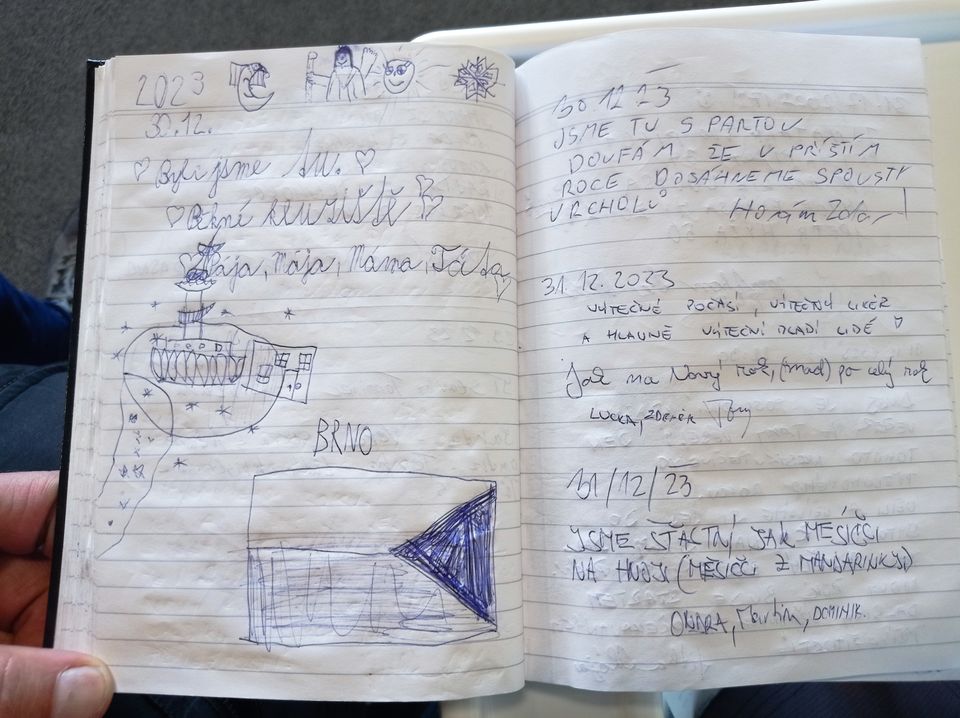 2023
30.12.
Byli jsme tu.
Pěkné
Kája, Mája, Máma, Táta
BRNO
30 12 23
JSME TU S PARTOU
DOUFÁM ŽE V PŘÍŠTÍM
ROCE DOSÁHNEME SPOUSTY
VRCHOLŮ Horám Zdar!
31.12.2023
VÝTEČNÉ POČASÍ, VÝTEČNÝ LIKÉR
A HLAVNĚ VÝTEČNÍ MLADÍ LIDÉ
Jak na Nový rok, (snad) po celý rok
LUCKA, ZDENĚK
31/12/23
JSME ŠŤASTNÍ JAK MĚSÍČCI
NA HNOJI (MĚSÍČCI Z MANDARINKY)
ONDRA, Martin, DOMINIK.